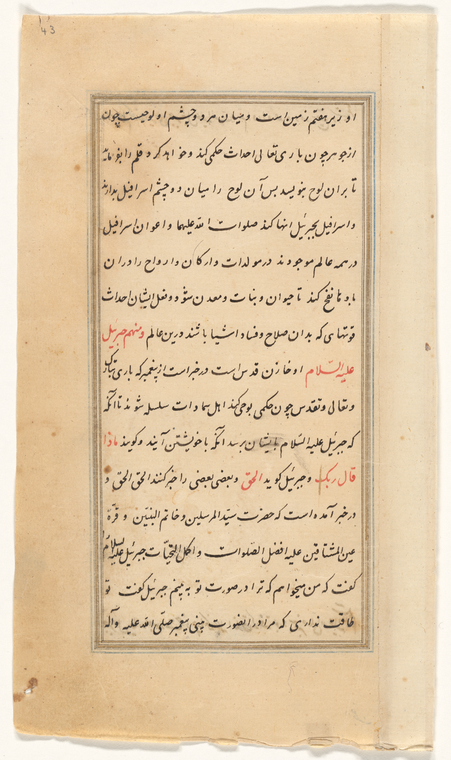 43
او زیر هفتم زمین است و میان هر دو چشم او لوحیست چون
از جوهر چون باری تعالی احداث حکمی کند و خواهد کرد قلم را بفرماید
تا بران لوح بنویسد پس آن لوح را میان دو چشم اسرافیل بدارند
و اسرافیل بجبرئیل انها کند صلوات الله علیهما و اعوان اسرافیل
در همه عالم موجودند در مولدات و ارکان و ارواح را دران
مادها نفخ کند تا حیوان و نبات و معدن شود و فعل ایشان احداث
قوتهای که بدان صلاح و فساد اشیا باشد درین عالم ومنهم جبرئیل
علیه السلام او خازن قدس است در خبر است از پیغمبر که باری تبارک
و تعالی و تقدس چون حکمی بوحی کند اهل سماوات سلسل شوند تا آنگه
که جبرئیل علیه السلام بایشان برسد آنگه با خویشتن آیند و گویند ماذا
قال ربک و جبرئیل گوید الحق و بعضی بعضی را خبر کنند الحق الحق و
در خبر آمده است که حضرت سید المرسلین و خاتم النبیین و قرة
عین المشتاقین علیه افضل الصلوات و اکمل التحیات جبرئیل علیه السلام را
گفت که من میخواهم که ترا در صورت تو به بینم جبرئیل گفت تو
طاقت نداری که مرا در آنصورت بینی پیغمبر صلی الله علیه وآله